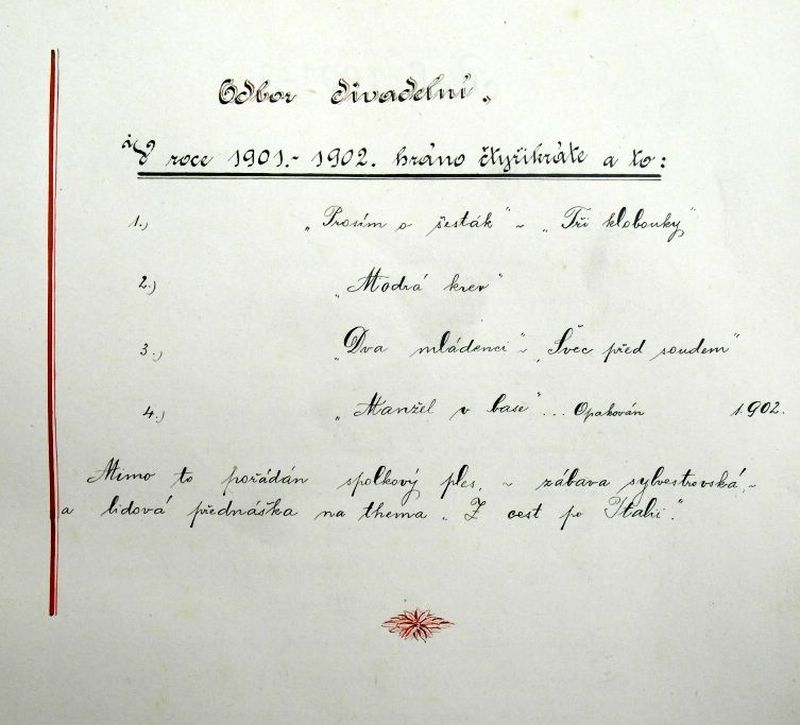 Odbor divadelní.
V roce 1901.- 1902. hráno čtyřikráte a to:
1.) „Prosím o šesták" ~ „Tři klobouky"
2.) „Modrá krev"
3.) „Dva mládenci" ~ „Švec před soudem"
4.) „Manžel v base" ... Opakován 1902.
Mimo to pořádán spolkový ples, ~ zábava sylvestrovská, ~
a lidová přednáška na thema „Z cest po Italii."